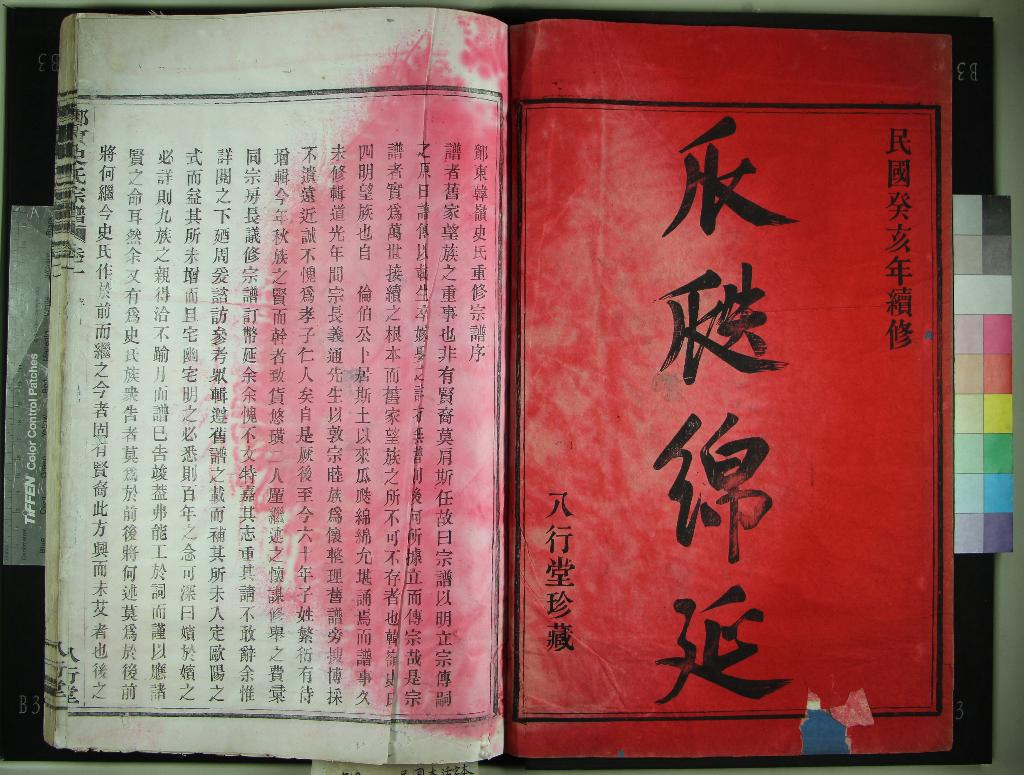 民國癸亥年續修
瓜瓞綿延
八行堂珍藏
鄮東韓嶺史氏重修宗譜序
譜者舊家望族之重事也非有賢裔莫肩斯任故曰宗譜以明立宗傳嗣
之原日譜傳以載生卒嫁娶之詳才無譜則後何所據立而傳宗哉是宗
譜者實爲萬世接續之根本而舊家望族之所不可不存者也韓嶺史氏
四明望族也自 倫伯公卜居斯土以來瓜瓞綿綿尤堪誦焉而譜事久
未修輯道光年間宗長義通先生以敦宗睦族爲懷整理舊譜旁搜博採
不遺遠近誠不愧爲孝子仁人矣自是厥後至今六十年子姓繁衍有待
增輯今年秋族之賢而幹者致貨悠璜二人壓繼述之懷謀修舉之費稟
同宗房長議修宗譜訂幣延余余愧不文特嘉其志重其請不敢辭余惟
詳閱之下廼周爰諮訪參考眾輯遵舊譜之載而補其所未入定歐陽之
式而益其所未增而且宅幽宅明之必悉則百年之念可深曰嬪於嬪之
必詳則九族之親得洽不踰月而譜已告竣葢弗能工於詞而謹以應諸
賢之命耳然余又有爲史氏族衆告者莫爲於前後將何述莫爲於後前
將何繼今史氏作於前而繼之今者固有賢裔此方興而未艾者也後之
鄮東史氏宗譜 卷一
八行堂
TIFFEN Color Control Patches
B3
B3
B3